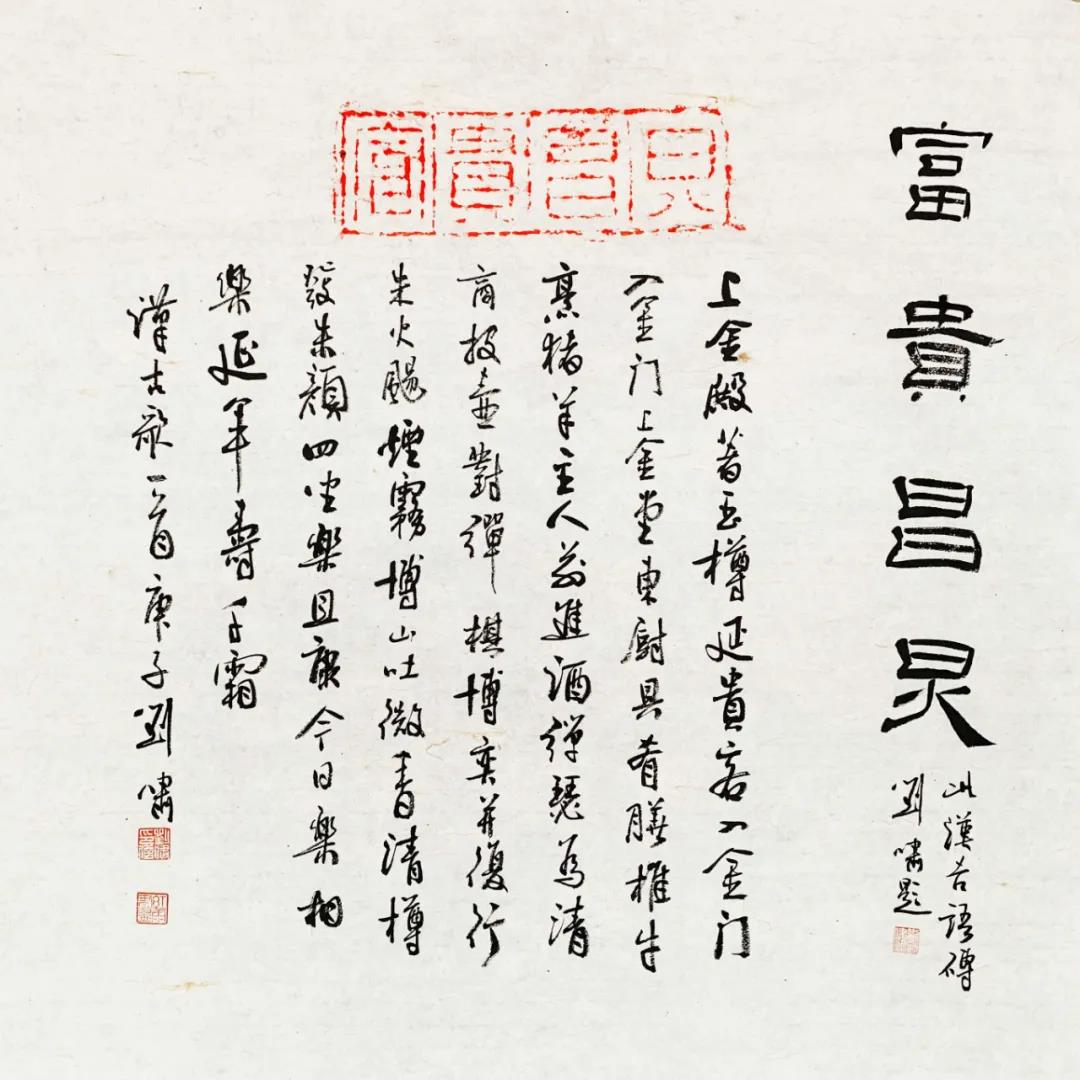 富貴昌炅
此漢吉語磚
劉嘯題
富貴昌炅
上金殿著玉樽延貴客入金门
入金门上金堂東廚具肴膳椎牛
烹猪羊主人前進酒彈瑟為清
商投壺對彈棋博奕并復行
朱火颺煙霧博山吐微香清樽
發朱顏四坐樂且康今日樂相
樂延年壽千霜
漢古歌一首庚子劉嘯